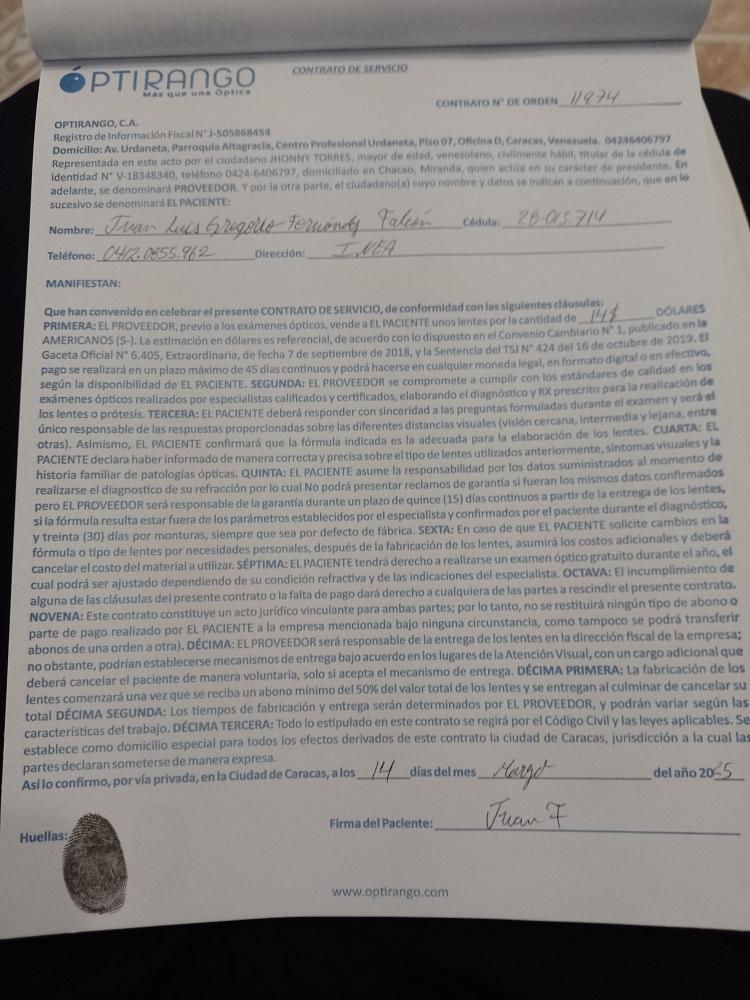 ÓPTIRANGO
Más que una Óptica
CONTRATO DE SERVICIO
CONTRATO N° DE ORDEN 11974
OPTIRANGO, C.A.
Registro de Información Fiscal N° J-505868454
Domicilio: Av. Urdaneta, Parroquia Altagracia, Centro Profesional Urdaneta, Piso 07, Oficina D, Caracas, Venezuela. 04246406797
Representada en este acto por el ciudadano JHONNY TORRES, mayor de edad, venezolano, civilmente hábil, titular de la cédula de
identidad N° V-18348340, teléfono 0424-6406797, domiciliado en Chacao, Miranda, quien actúa en su carácter de presidente. En
adelante, se denominará PROVEEDOR. Y por la otra parte, el ciudadano(a) cuyo nombre y datos se indican a continuación, que en lo
sucesivo se denominará EL PACIENTE:
Nombre: Juan Luis Gregorio Fernández Falcón Cédula: 28.015.714
Teléfono: 0412.0855.962 Dirección: INEA
MANIFIESTAN:
Que han convenido en celebrar el presente CONTRATO DE SERVICIO, de conformidad con las siguientes cláusulas:
PRIMERA: EL PROVEEDOR, previo a los exámenes ópticos, vende a EL PACIENTE unos lentes por la cantidad de 14$ DÓLARES
AMERICANOS ($-). La estimación en dólares es referencial, de acuerdo con lo dispuesto en el Convenio Cambiario N° 1, publicado en la
Gaceta Oficial N° 6.405, Extraordinaria, de fecha 7 de septiembre de 2018, y la Sentencia del TSJ N° 424 del 16 de octubre de 2019. El
pago se realizará en un plazo máximo de 45 días continuos y podrá hacerse en cualquier moneda legal, en formato digital o en efectivo,
según la disponibilidad de EL PACIENTE. SEGUNDA: EL PROVEEDOR se compromete a cumplir con los estándares de calidad en los
exámenes ópticos realizados por especialistas calificados y certificados, elaborando el diagnóstico y RX prescrito para la realización de
los lentes o prótesis. TERCERA: EL PACIENTE deberá responder con sinceridad a las preguntas formuladas durante el examen y será el
único responsable de las respuestas proporcionadas sobre las diferentes distancias visuales (visión cercana, intermedia y lejana, entre
otras). Asimismo, EL PACIENTE confirmará que la fórmula indicada es la adecuada para la elaboración de los lentes. CUARTA: EL
PACIENTE declara haber informado de manera correcta y precisa sobre el tipo de lentes utilizados anteriormente, síntomas visuales y la
historia familiar de patologías ópticas. QUINTA: EL PACIENTE asume la responsabilidad por los datos suministrados al momento de
realizarse el diagnostico de su refracción por lo cual No podrá presentar reclamos de garantía si fueran los mismos datos confirmados
pero EL PROVEEDOR será responsable de la garantía durante un plazo de quince (15) días continuos a partir de la entrega de los lentes,
si la fórmula resulta estar fuera de los parámetros establecidos por el especialista y confirmados por el paciente durante el diagnóstico,
y treinta (30) días por monturas, siempre que sea por defecto de fábrica. SEXTA: En caso de que EL PACIENTE solicite cambios en la
fórmula o tipo de lentes por necesidades personales, después de la fabricación de los lentes, asumirá los costos adicionales y deberá
cancelar el costo del material a utilizar. SÉPTIMA: EL PACIENTE tendrá derecho a realizarse un examen óptico gratuito durante el año, el
cual podrá ser ajustado dependiendo de su condición refractiva y de las indicaciones del especialista. OCTAVA: El incumplimiento de
alguna de las cláusulas del presente contrato o la falta de pago dará derecho a cualquiera de las partes a rescindir el presente contrato.
NOVENA: Este contrato constituye un acto jurídico vinculante para ambas partes; por lo tanto, no se restituirá ningún tipo de abono o
parte de pago realizado por EL PACIENTE a la empresa mencionada bajo ninguna circunstancia, como tampoco se podrá transferir
abonos de una orden a otra). DÉCIMA: EL PROVEEDOR será responsable de la entrega de los lentes en la dirección fiscal de la empresa;
no obstante, podrían establecerse mecanismos de entrega bajo acuerdo en los lugares de la Atención Visual, con un cargo adicional que
deberá cancelar el paciente de manera voluntaria, solo si acepta el mecanismo de entrega. DÉCIMA PRIMERA: La fabricación de los
lentes comenzará una vez que se reciba un abono mínimo del 50% del valor total de los lentes y se entregan al culminar de cancelar su
total DÉCIMA SEGUNDA: Los tiempos de fabricación y entrega serán determinados por EL PROVEEDOR, y podrán variar según las
características del trabajo. DÉCIMA TERCERA: Todo lo estipulado en este contrato se regirá por el Código Civil y las leyes aplicables. Se
establece como domicilio especial para todos los efectos derivados de este contrato la ciudad de Caracas, jurisdicción a la cual las
partes declaran someterse de manera expresa.
Así lo confirmo, por vía privada, en la Ciudad de Caracas, a los 14 días del mes Marzo del año 2025
Huellas:
Firma del Paciente: Juan F
www.optirango.com